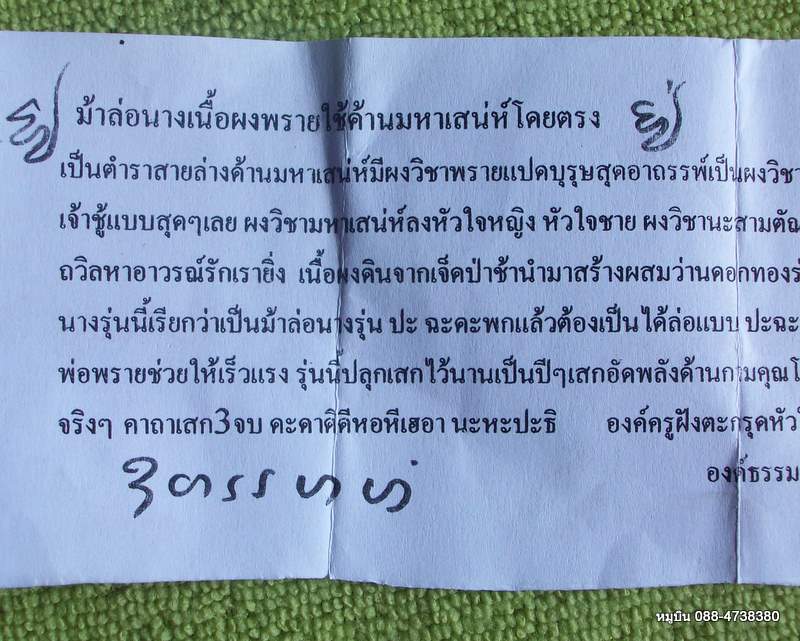 ม้าล่อนางเนื้อผงพรายใช้ด้านมหาเสน่ห์โดยตรง
เป็นตำราสายล่างด้านมหาเสน่ห์มีผงวิชาพรายแปดบุรุษสุดอาถรรพ์เป็นผงวิชา
เจ้าชู้แบบสุดๆเลย ผงวิชามหาเสน่ห์ลงหัวใจหญิง หัวใจชาย ผงวิชานะสามตัณ
ถวิลหาอาวรณ์รักเรายิ่ง เนื้อผงดินจากเจ็ดป่าช้านำมาสร้างผสมว่านดอกทองร่
นางรุ่นนี้เรียกว่าเป็นม้าล่อนางรุ่น ปะ ฉะคะพกแล้วต้องเป็นได้ล่อแบบ ปะฉะ
พ่อพรายช่วยให้เร็วแรง รุ่นนี้ปลุกเสกไว้นานเป็นปีๆเสกอัดพลังด้านกามคุณโ
จริงๆ คาถาเสก3จบ คะคาผิดีหอหีเฮอา นะหะปะธิ องค์ครูฝังตะกรุดหัวใ
องค์ธรรม
หมูบิน 088-4738380